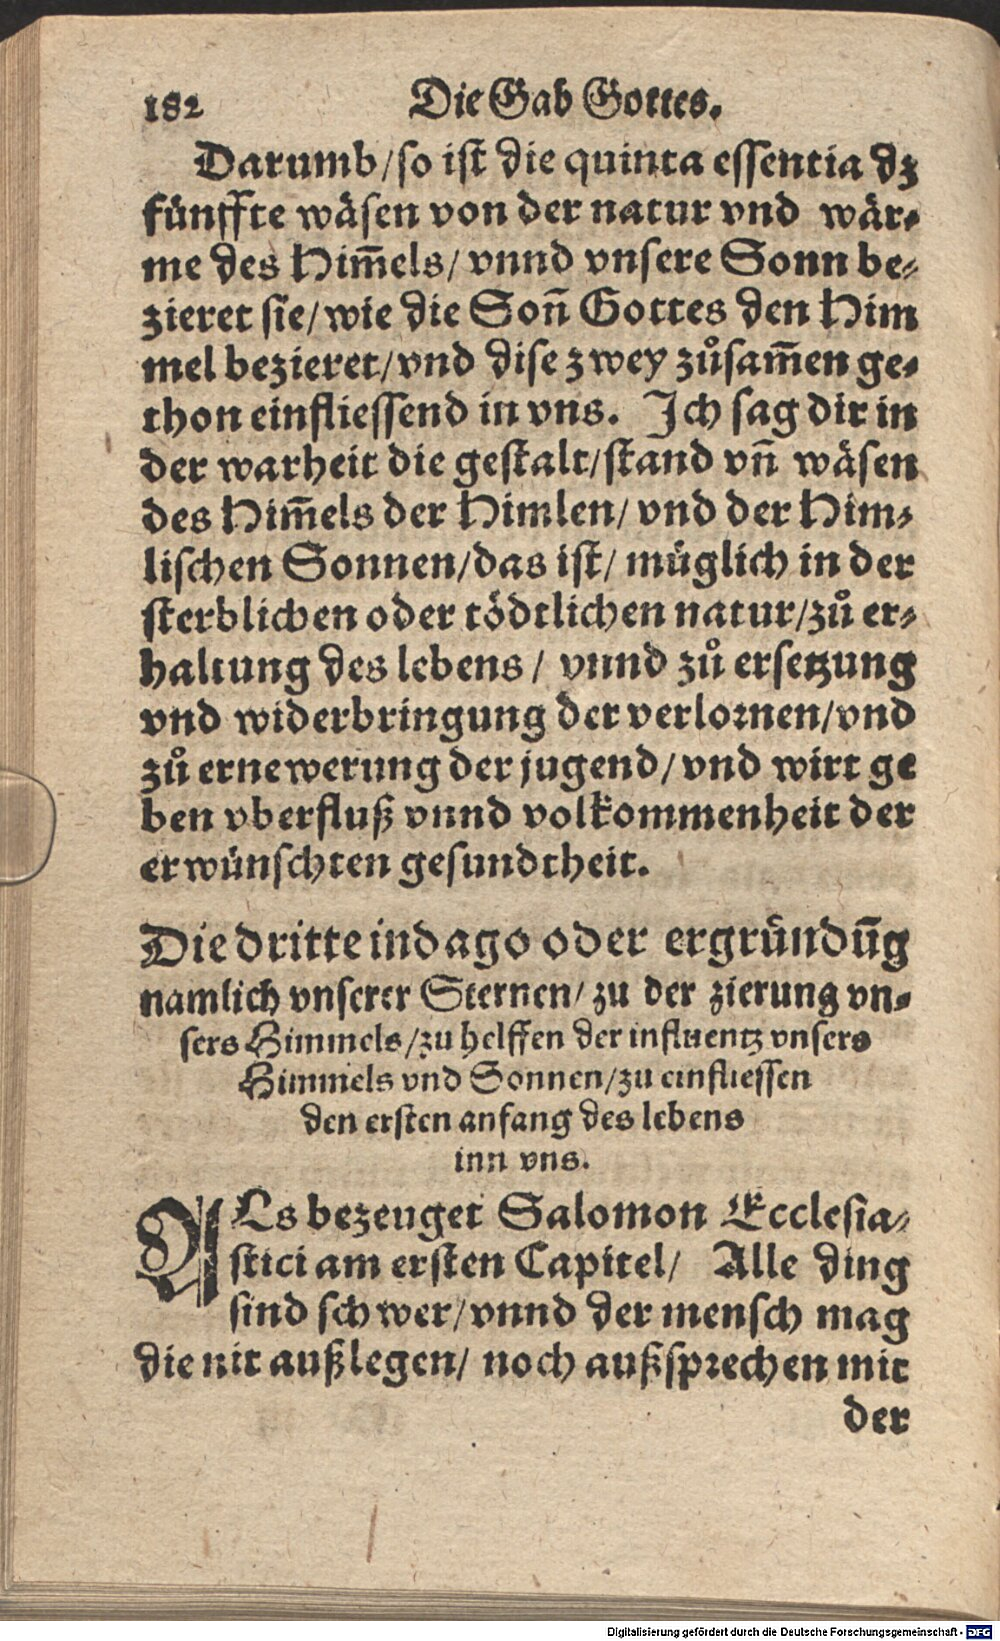 182 Die Gab Gottes.
Darumb/so ist die quinta essentia dz
fünffte wäsen von der natur vnd wär-
me des Him̃els/ vnnd vnsere Sonn be-
zieret sie/wie die Son̄ Gottes den Him
mel bezieret/vnd dise zwey zůsam̃en ge-
thon einfliessend in vns. Ich sag dir in
der warheit die gestalt/stand vn̄ wäsen
des Him̃els der Himlen/ vnd der Him-
lischen Sonnen/das ist/ müglich in der
sterblichen oder tödtlichen natur/zů er-
haltung des lebens/ vnnd zů ersetzung
vnd widerbringung der verlornen/vnd
zů ernewerung der jugend/vnd wirt ge
ben vberfluß vnnd volkommenheit der
erwünschten gesundtheit.
Die dritte indago oder ergründūg
namlich vnserer Sternen/ zu der zierung vn-
sers Himmels/zu helffen der influentz vnsers
Himmels vnd Sonnen/zu einfliessen
den ersten anfang des lebens
inn vns.
ALs bezeuget Salomon Ecclesia-
stici am ersten Capitel/ Alle ding
sind schwer/vnnd der mensch mag
die nit außlegen/ noch außsprechen mit
der
Digitalisierung gefördert durch die Deutsche Forschungsgemeinschaft - DFG